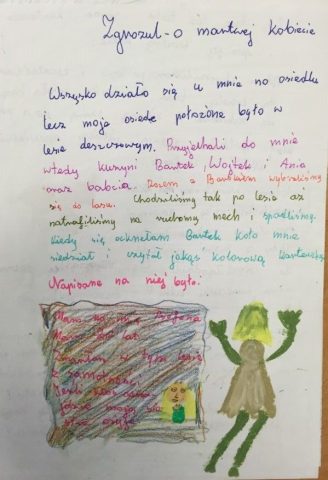 Zgrozul-o martwej kobiecie
Wszysko działo się u mnie na osiedlu
lecz moje osiedle położone było w
lesie deszczowym. Przyjechali do mnie
wtedy kuzyni Bartek, Wojtek i Ania
oraz babcia. Razem z Bartkiem wybraliśmy
się do lasu. Chodziliśmy tak po lesie aż
natrafiliśmy na ruchomy mech i spadliśmy.
Kiedy się ocknęłam Bartek koło mnie
siedział i czytał jakąś kolorową karteczkę.
Napisane na niej było:
Mam na imię
Mam lat.
Zmarłam w tym lesie
z samotności.
Jeśli
gdzie moja